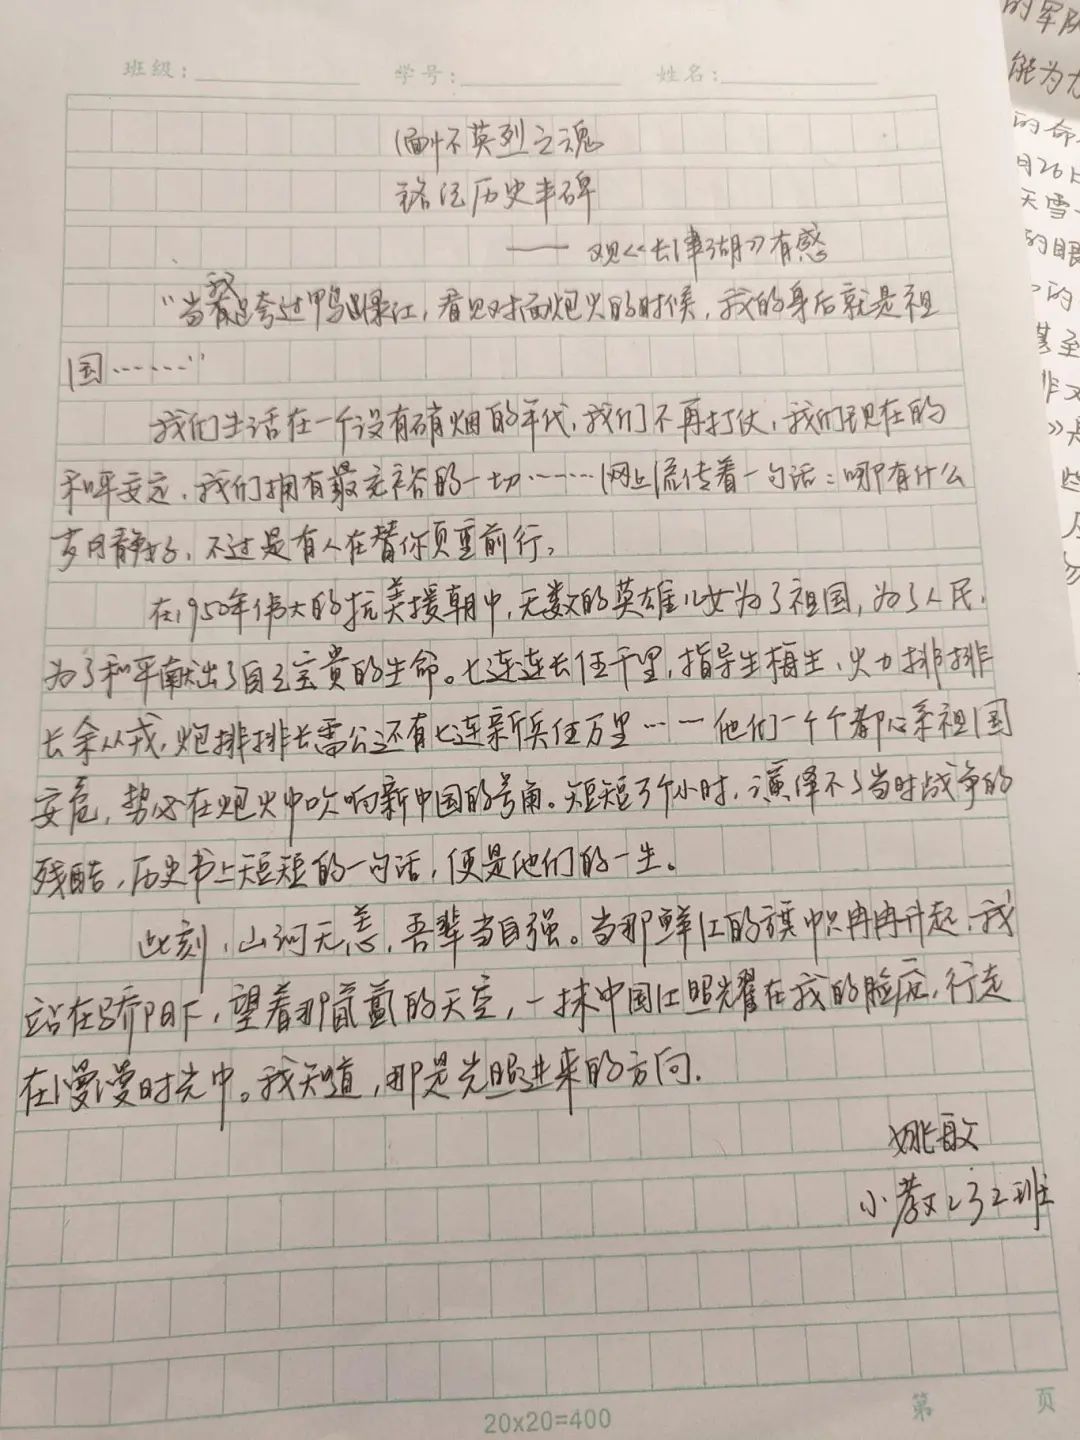 班级： 学号： 姓名：
缅怀英烈之魂
铭记历史丰碑
—— 观《长津湖》有感
"当我跨过鸭绿江，看见对面炮火的时候，我的身后就是祖
国……"
我们生活在一个没有硝烟的年代，我们不再打仗，我们现在的
和平安定，我们拥有最充裕的一切……网上流传着一句话：哪有什么
岁月静好，不过是有人在替你负重前行，
在1950年伟大的抗美援朝中，无数的英雄儿女为了祖国，为了人民，
为了和平献出了自己宝贵的生命。七连连长伍千里，指导生梅生，火力排排
长余从戎，炮排排长雷公还有七连新兵伍万里……他们一个个都心系祖国
安危，势必在炮火中吹响新中国的号角。短短3个小时，演绎不了当时战争的
残酷，历史书上短短的一句话，便是他们的一生。
此刻，山河无恙，吾辈当自强。当那鲜红的旗帜冉冉升起，我
站在骄阳下，望着那蔚蓝的天空，一抹中国红照耀在我的脸庞，行走
在漫漫时光中。我知道，那是光照进来的方向.
姚敏
小教232班
20x20=400
第 页
的军队
能为力
的命
月26日
天雪
的眼
的
甚至
非又
些